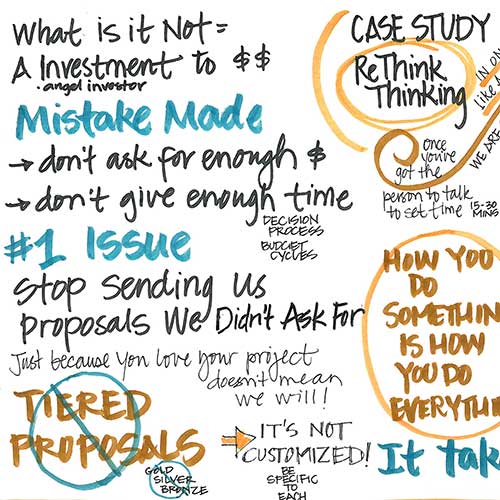 What is it Not =
A Investment to $$
• angel investor
Mistake Made
→ don't ask for enough $
→ don't give enough time
DECISION
PROCESS
BUDGET
CYCLES
#1 Issue
Stop Sending Us
proposals We Didn't Ask For
Just because you love your project
doesn't mean
we will!
TIERED
PROPOSALS
GOLD
SILVER
BRONZE
IT'S NOT
CUSTOMIZED!
BE
SPECIFIC
TO
EACH
CASE STUDY
ReThink
Thinking
IN ON
Like A
WE ARE
once
you've
got the
person to talk
to set time 15-30
MINS
HOW YOU
DO
SOMETHIN
IS HOW
YOU DO
EVERYTHI
It tak